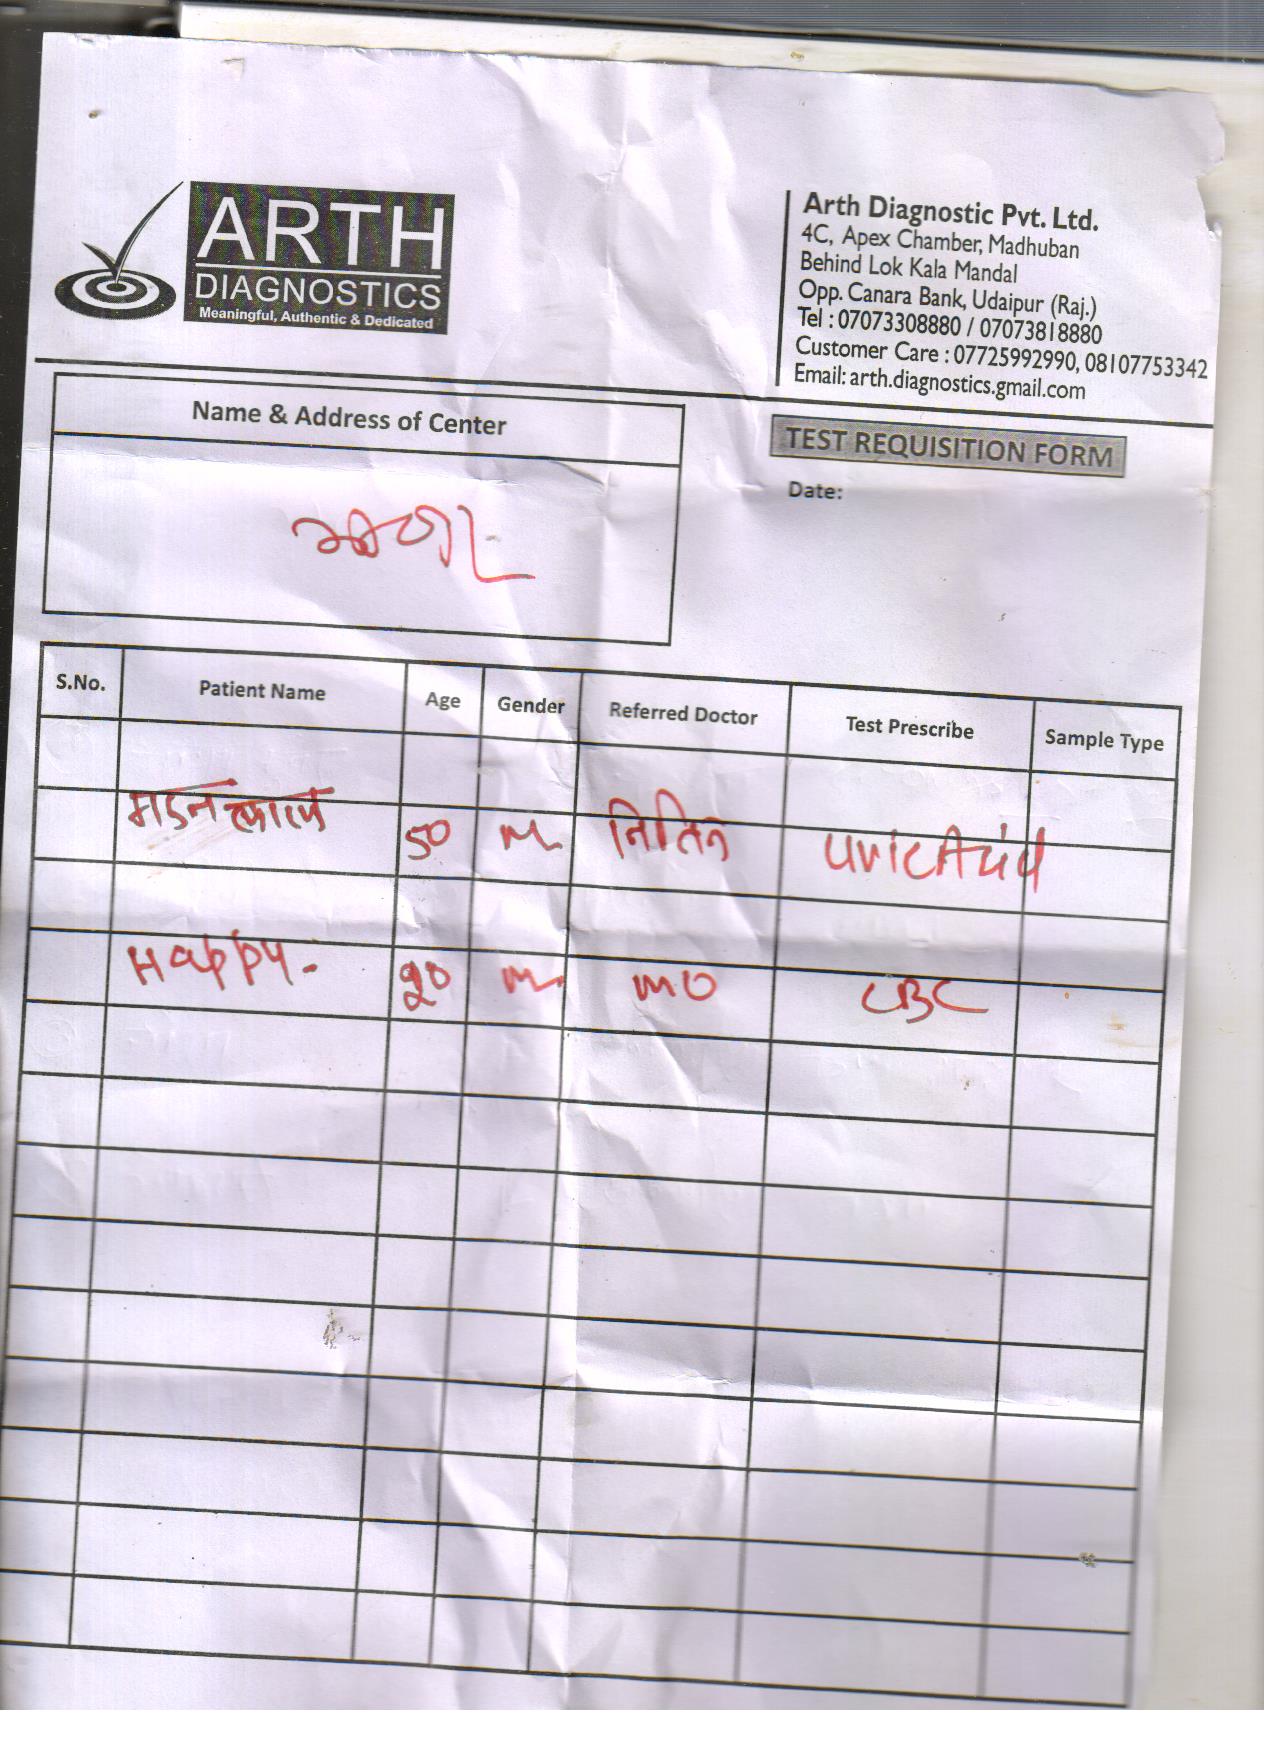 ARTH
DIAGNOSTICS
Meaningful, Authentic & Dedicated
Arth Diagnostic Pvt. Ltd.
4C, Apex Chamber, Madhuban
Behind Lok Kala Mandal
Opp. Canara Bank, Udaipur (Raj.)
Tel : 07073308880 / 07073818880
Customer Care : 07725992990, 08107753342
Email: arth.diagnostics.gmail.com
Name & Address of Center
TEST REQUISITION FORM
Date:
S.No. Patient Name Age Gender Referred Doctor Test Prescribe Sample Type
50 M नितिन Uric Acid
Happy. 20 M. MO CBC